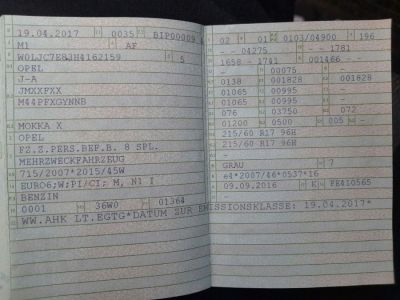 19.04.2017 0035 BIP00009
M1 AF
5
OPEL
J-A
JMXXFXX
M44PFXGYNNB
MOKKA X
OPEL
FZ.Z.PERS.BEF.B. 8 SPL.
MEHRZWECKFAHRZEUG
715/2007*2015/45W
EURO6;W;PI/CI; M, N1 I
BENZIN
0001 36W0 01364
WW.AHK LT.EGTG*DATUM ZUR EMISSIONSKLASSE: 19.04.2017*
02 01 0103/04900 196
- - 04275 - - 1781
1658 - 1741 - 001466 - -
- 00075 - -
0138 001828 001828
01065 00995 -
01065 00995 -
076 03750 072
01200 0500 005 -
215/60 R17 96H
215/60 R17 96H
-
GRAU 7
e4*2007/46*0537*16
09.09.2016 K FE410565
- -